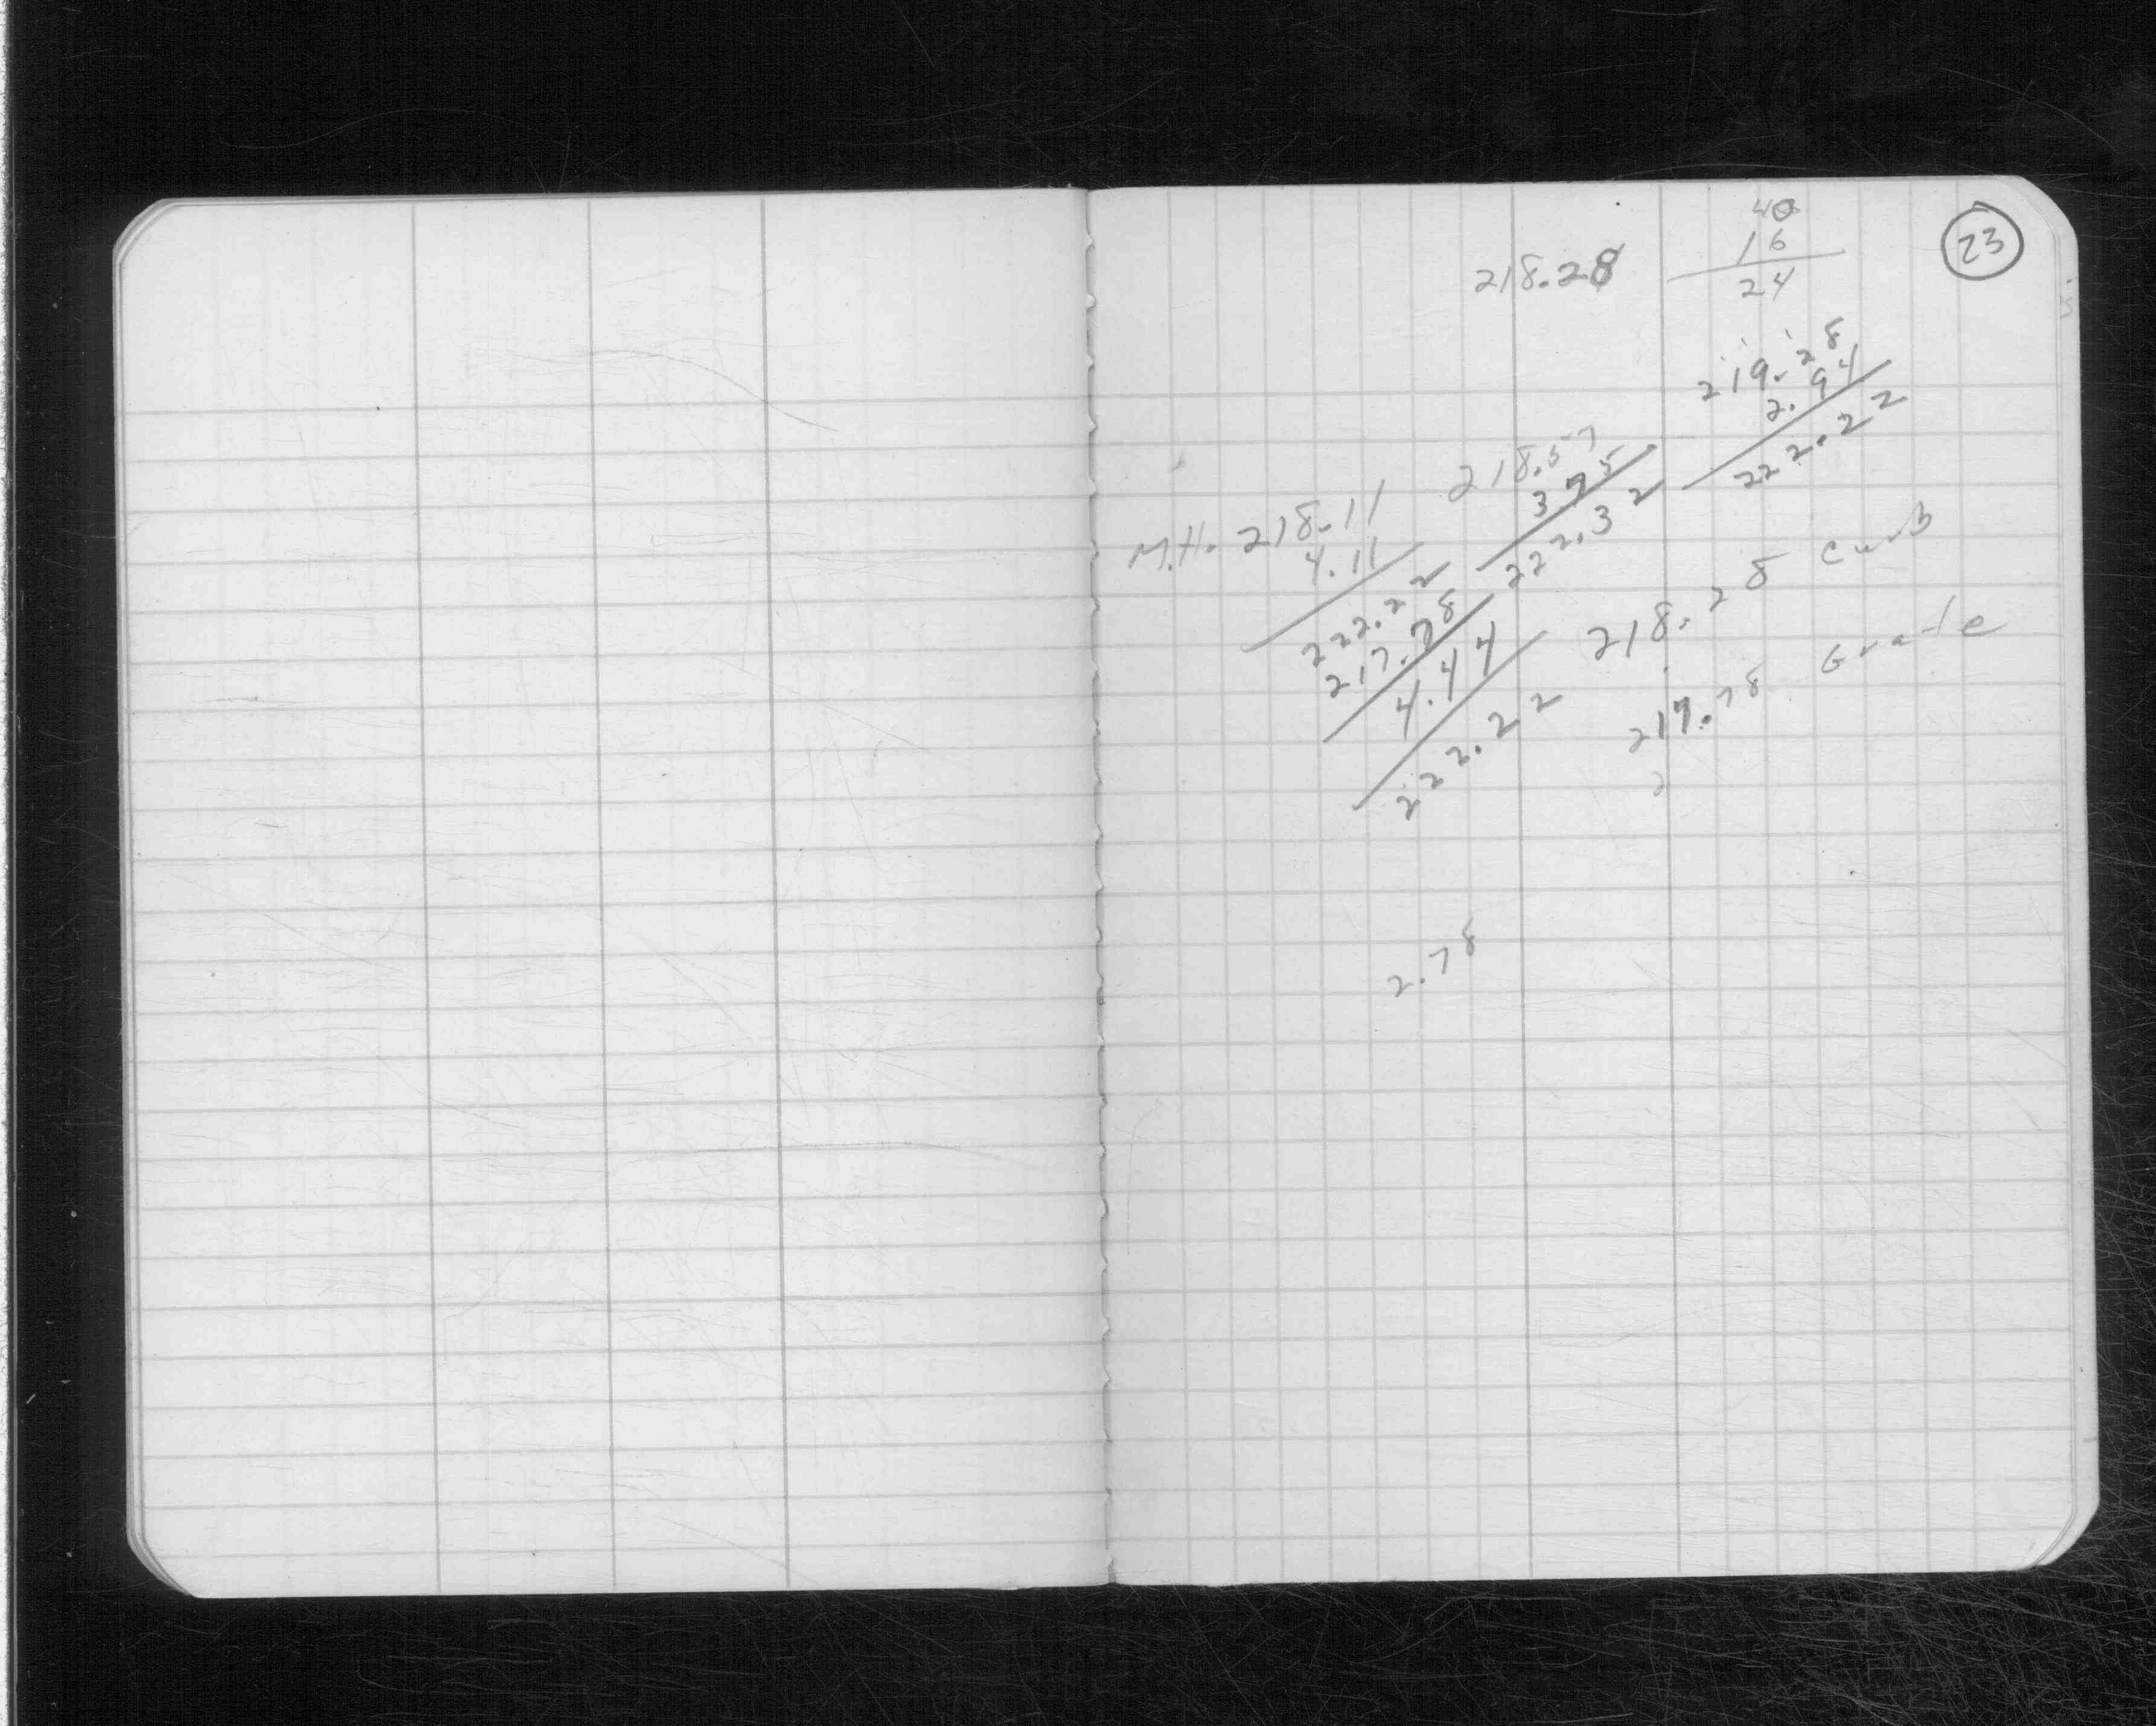 23
40
16
24
218.28
219.28
2.94
222.22
218.57
3 75
222.32
M.H. 218.11
4.11
222.22
217.78
4.44
222.22
218.28 Curb
217.78 Grate
2
2.78